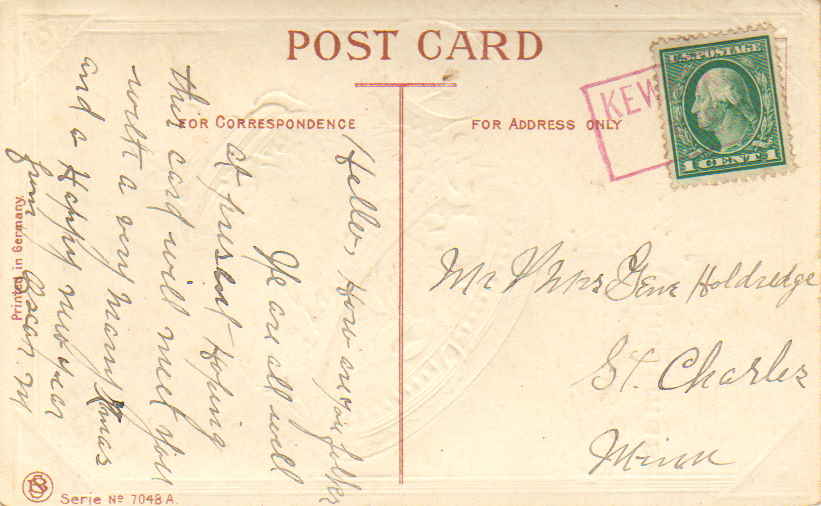 POST CARD
FOR CORRESPONDENCE
FOR ADDRESS ONLY
U.S. POSTAGE
1 CENT 1
KEW
Hello, How are you folks
We are all well
at present Hoping
this card will meet you
with a very Marry Xmas
and a Happy new year
from Oscar M
Mr & Mrs Gene Holdredge
St. Charles
Minn
Printed in Germany
Serie No 7048 A.